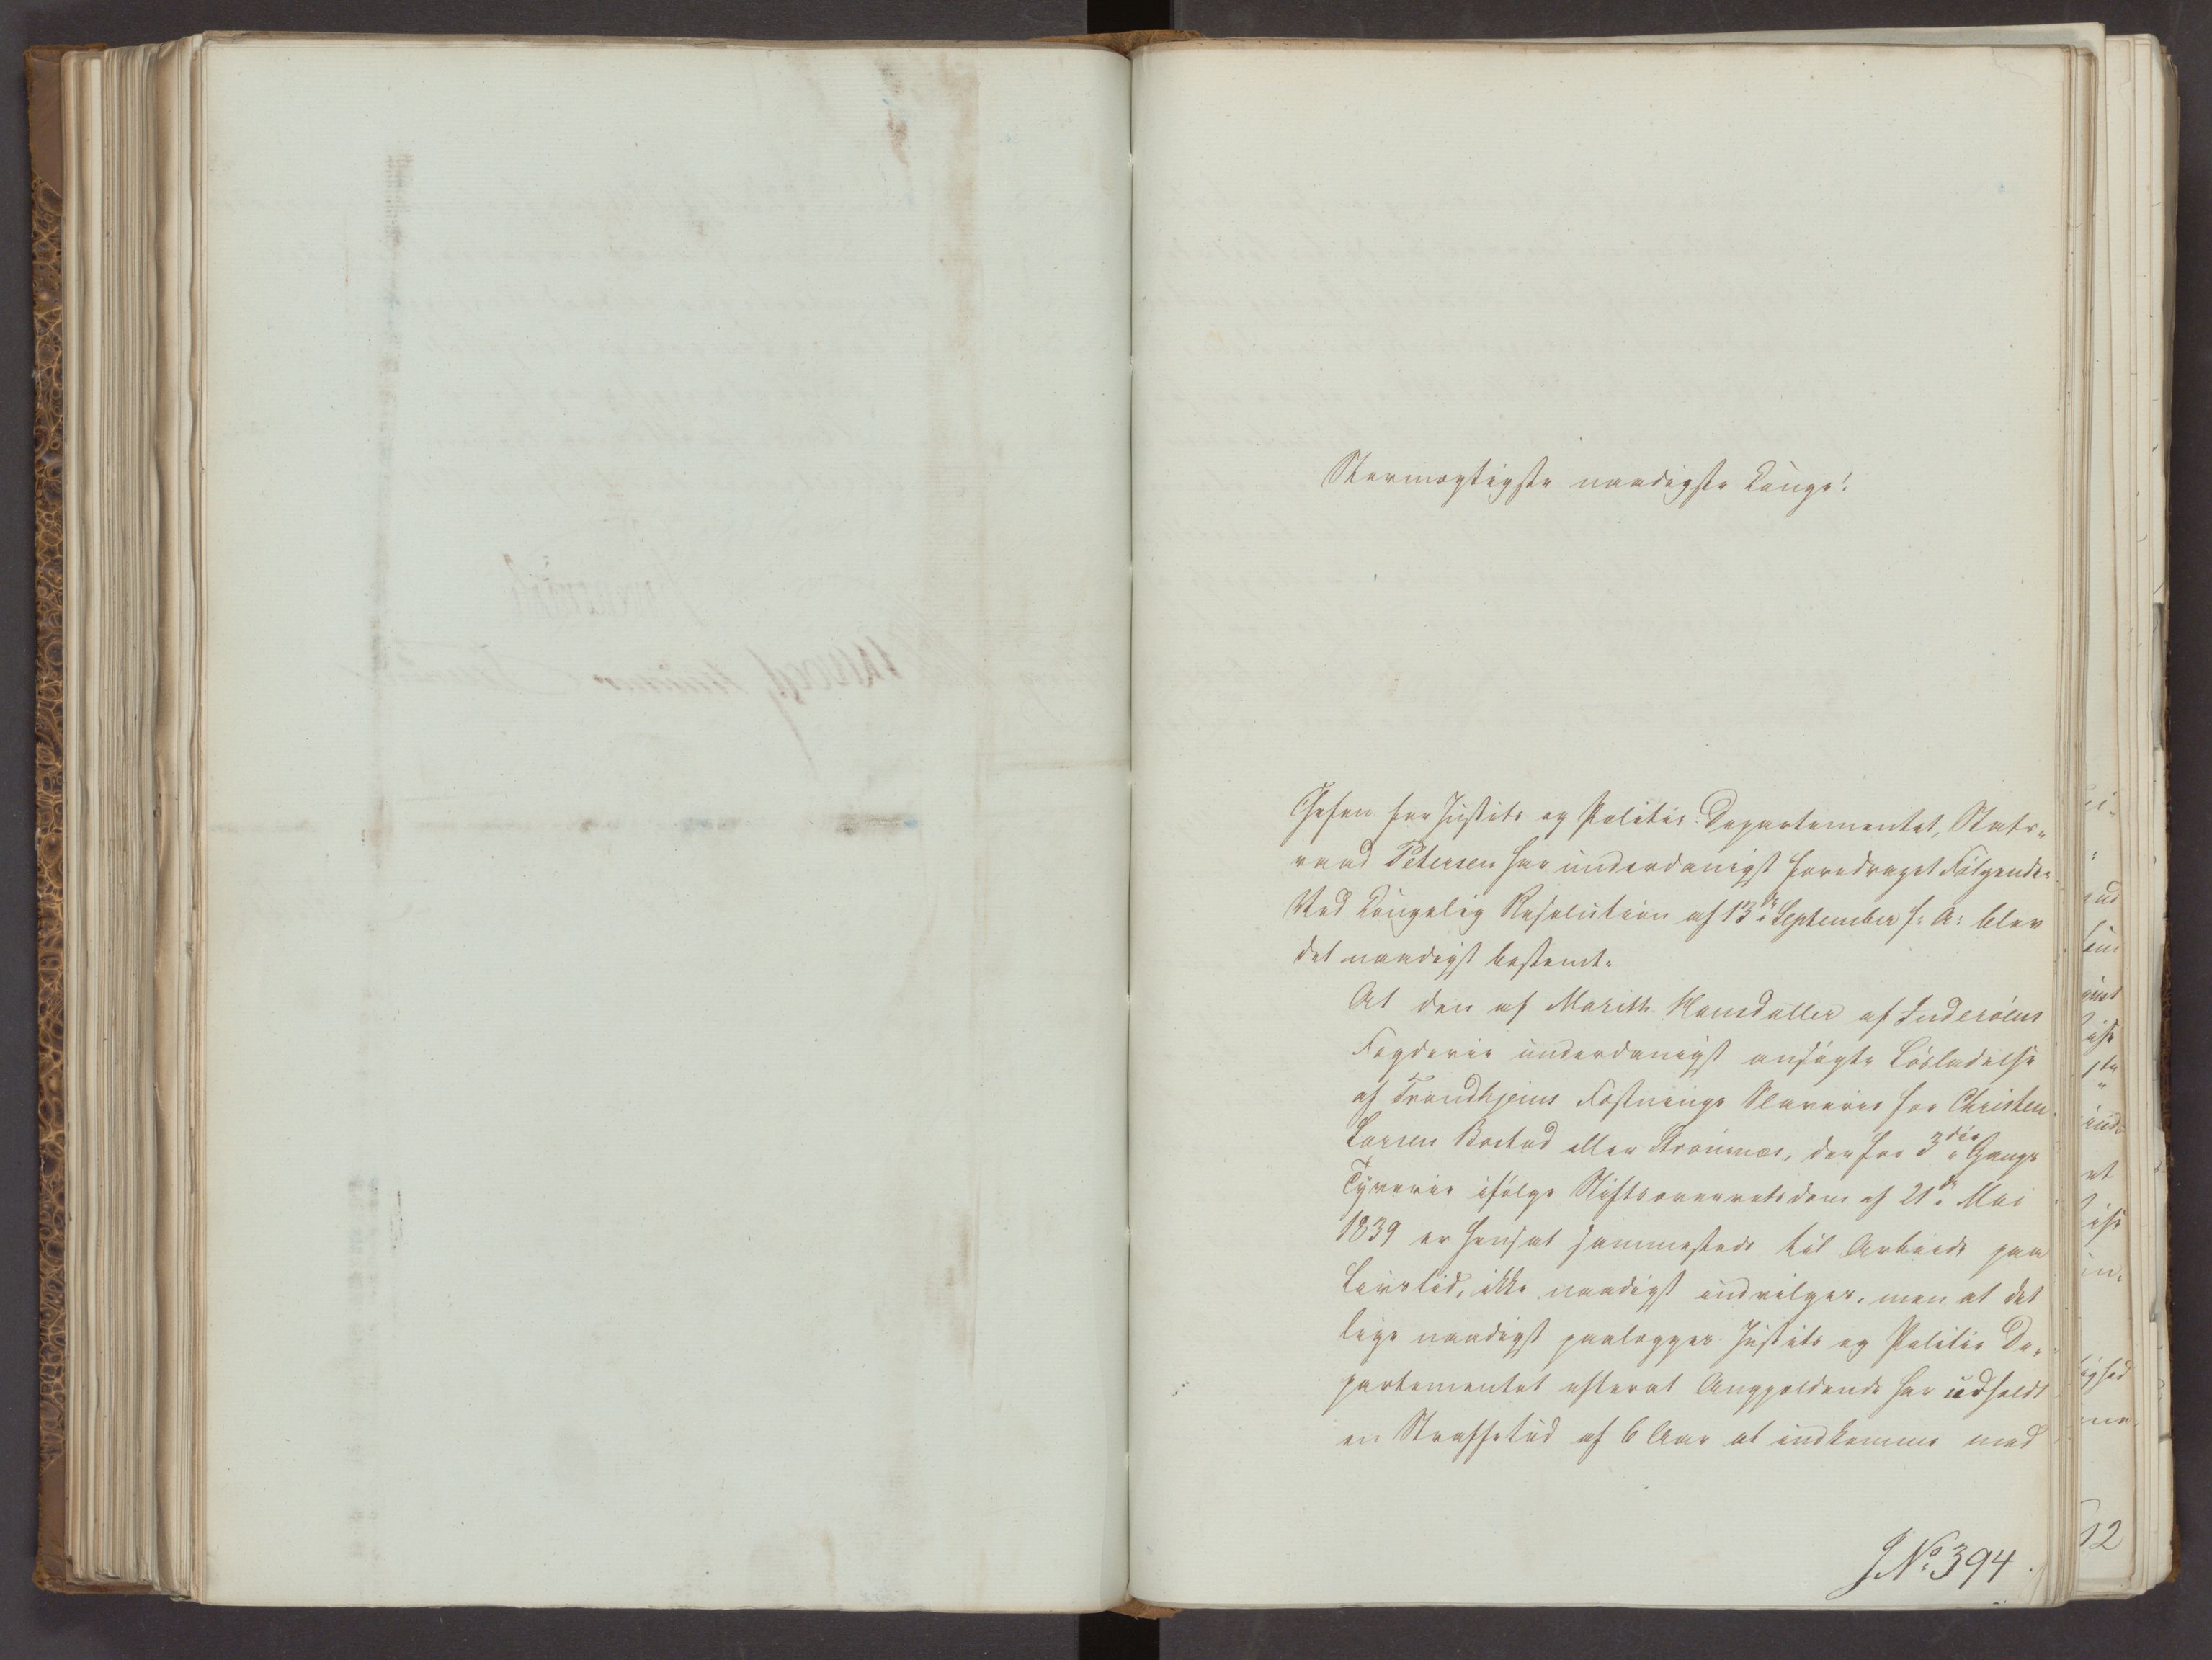 Stormægtigste naadigste Konge!
Chefen for Justits og Politie-Departementet, Stats-
raad Petersen har underdanigst foredraget Følgende:
Ved Kongelig Resolution af 13de September f: A: blev
det naadigst bestemt:
At den af Marith Hansdatter af Inderøens
Fogderie underdanigst ansøgte Løsladelse
af Trondhjems Fæstnings Slaverie for Christen
Larsen eller der for 3die Gangs
Tyverie ifølge Stiftsoverretsdom af 21de Mai
1839 er hensat sammesteds til Arbeide paa
Livstid, ikke naadigst indvilges, men at det
lige naadigst paalægges Justits og Politie De-
partementet efterat Angjældende har udholdt
en Straffetid af 6 Aar at indkomme med
J.No: 394.